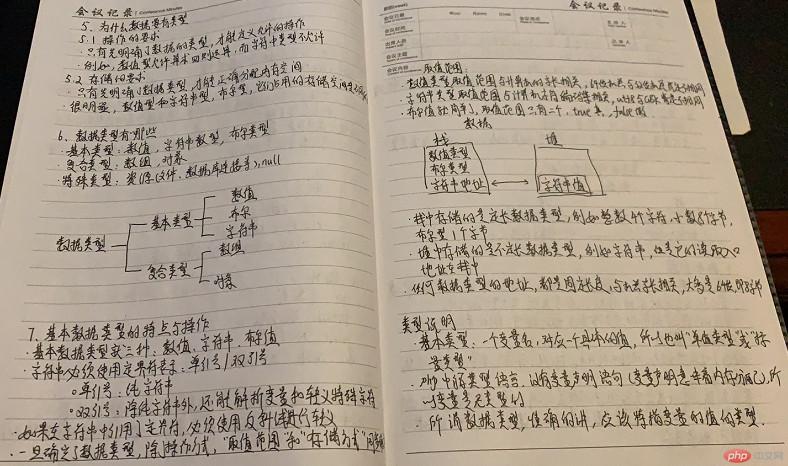 会议记录 | Conference Minutes
5. 为什么数据要有类型
5.1 操作的要求
· 只有先明确了数据的类型，才能定义允许的操作
· 例如，数值型允许算术四则运算，而字符串类型不允许
5.2 存储的要求
· 只有先明确了数据类型，才能正确分配内存空间
· 很明显，数值型和字符串型，布尔型，它们占用的存储空间是
6. 数据类型有哪些
· 基本类型：数值，字符串类型，布尔类型
· 复合类型：数组，对象
· 特殊类型：资源(文件，数据库连接等)，null
数据类型
基本类型
数值
布尔
字符串
复合类型
数组
对象
7. 基本数据类型的特点与操作
· 基本数据类型就三种：数值、字符串、布尔值
· 字符串必须使用定界符表示：单引号/双引号
单引号：纯字符串
双引号：除纯字符串外，还能解析变量和转义特殊字符
· 如果在字符串中引用了定界符，必须使用反斜线进行转义
· 一旦确定了数据类型，除操作方式，"取值范围"和"存储方式"同
会议记录 | Conference Minutes
会议日期
会议时间
会议地点
主持人
出席人员
记录人
会议主题
会议内容
取值范围：
· 数值类型取值范围与计算机的字长相关，64位机与32位机
· 字符串类型取值范围与计算机字符编码集相关，utf8与GBK
· 布尔值就简单了，取值范围只有二个，true真，false假
数据
栈
堆
数值类型
布尔类型
字符串地址
字符串值
· 栈中存储的是定长数据类型，例如整数4个字节，小数8个字节，
布尔型1个字节
· 堆中存储的是不定长数据类型，例如字符串，但是它的读取入口
地址在栈中
· 任何数据类型的地址，都是固定长度，与机器字长相关，大多是64位，即8字节
类型说明
· 基本类型：一个变量名，对应一个具体的值，所以也叫"单值类型"或"标
量类型"
· php中弱类型语言，没有变量声明语句(变量声明意味着内存分配)，所
以变量是无类型的
· 所谓数据类型，准确的讲，应该特指变量的值的类型．
php 中文网